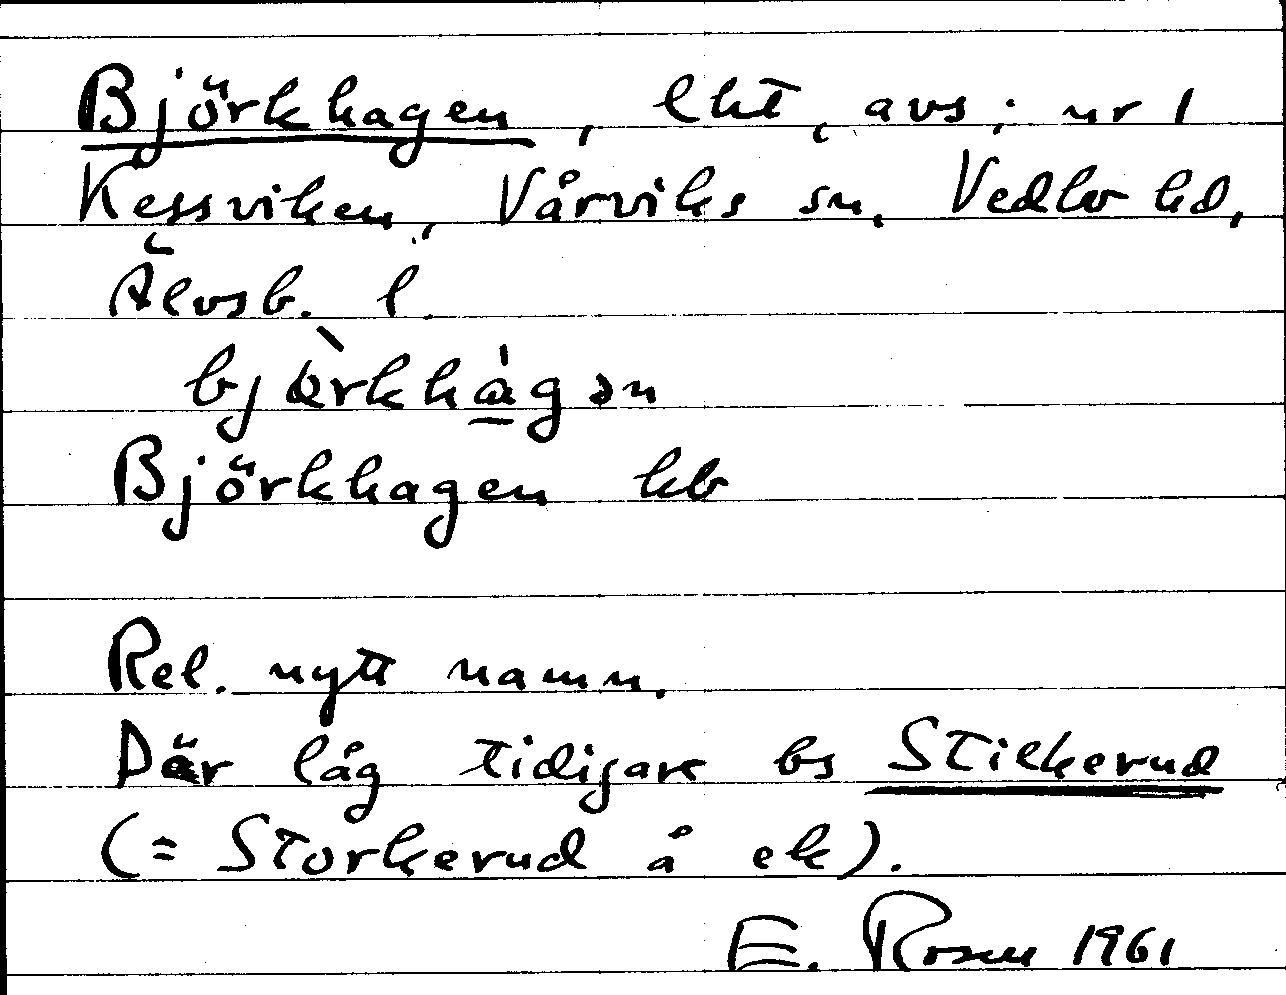 Björkhagen, lht, avs; nr 1
Kessviken, Vårviks sn, Vedbo hd,
Älvsb. l
bjö̀rkhágən
Björkhagen kb
Rel. nytt namn.
Där låg tidigare bs Stilkerud
(= Storkerud å ek).
E. Rosen 1961